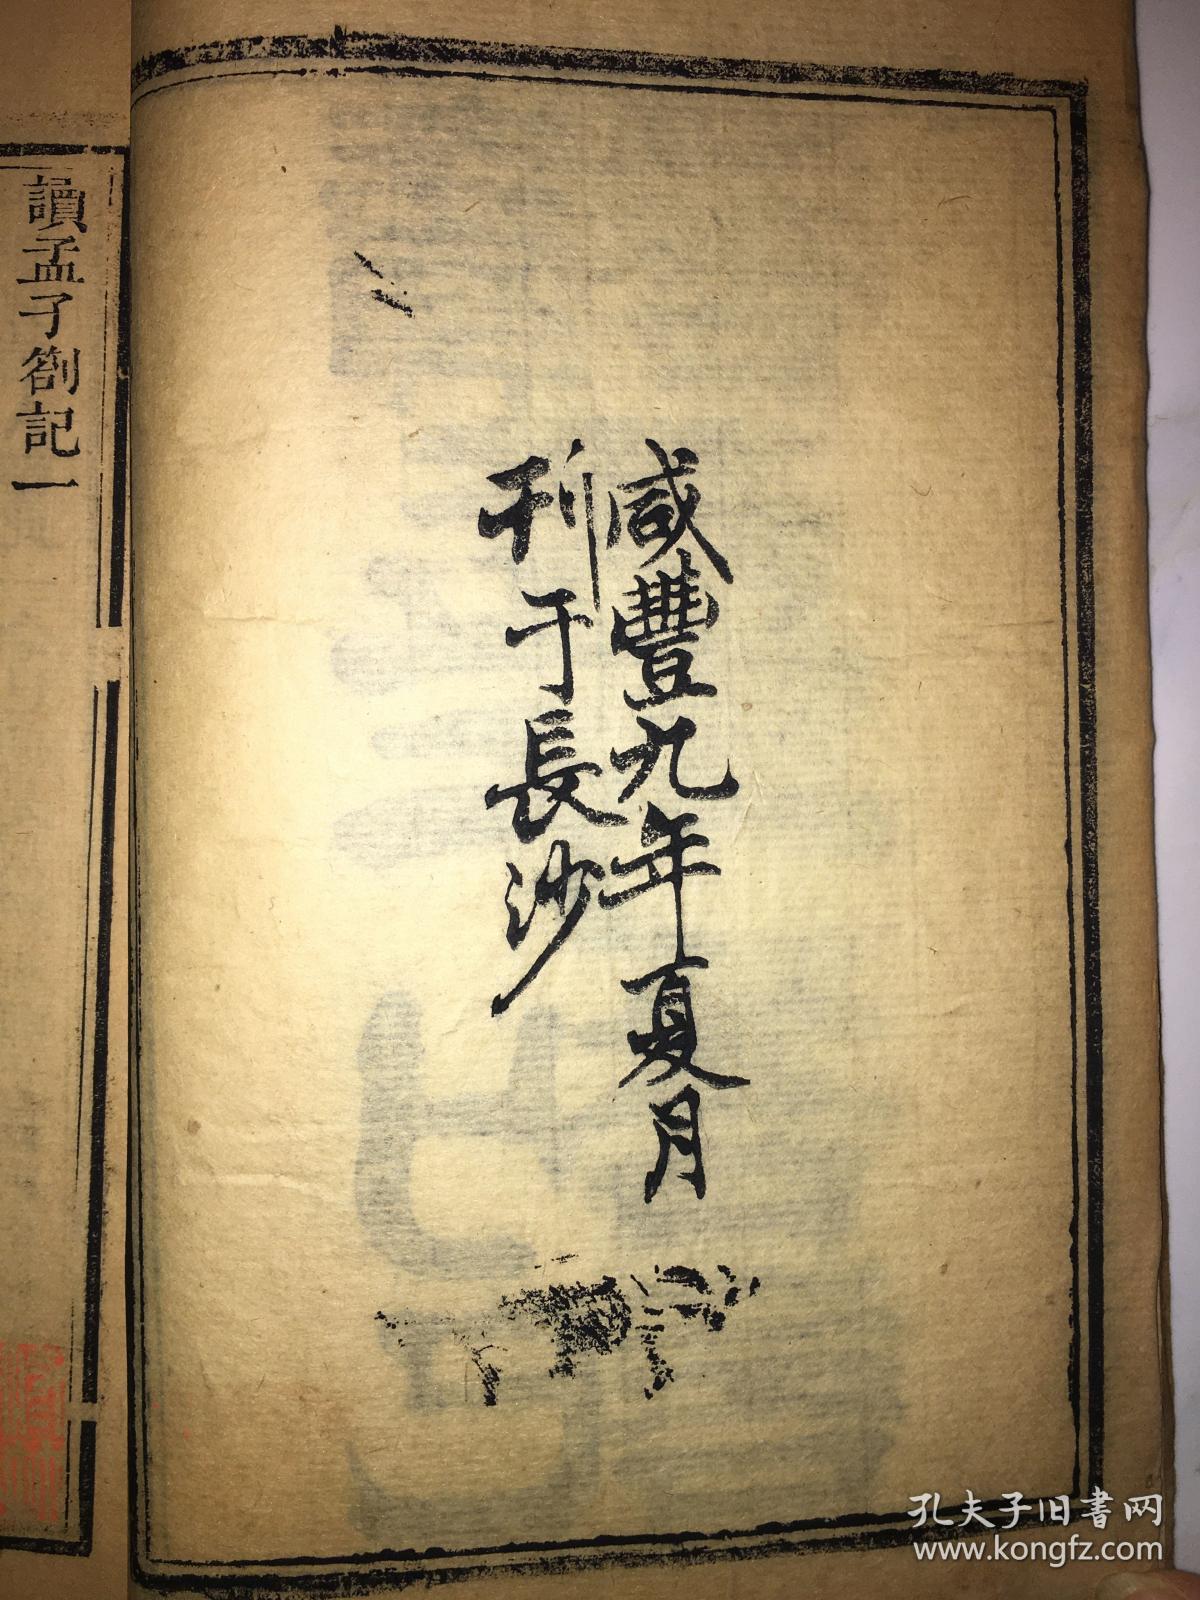 咸豐九年夏月
刊于長沙
讀孟子劄記一
孔夫子旧書网
www.kongfz.com